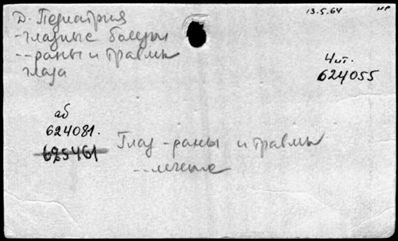 Д. Педиатрия 13.5.64 нр
-глазные болезни
--раны и травмы
глаза
Чит.
624055
аб
624081.
625461 Глаз -раны и травмы
--лечение